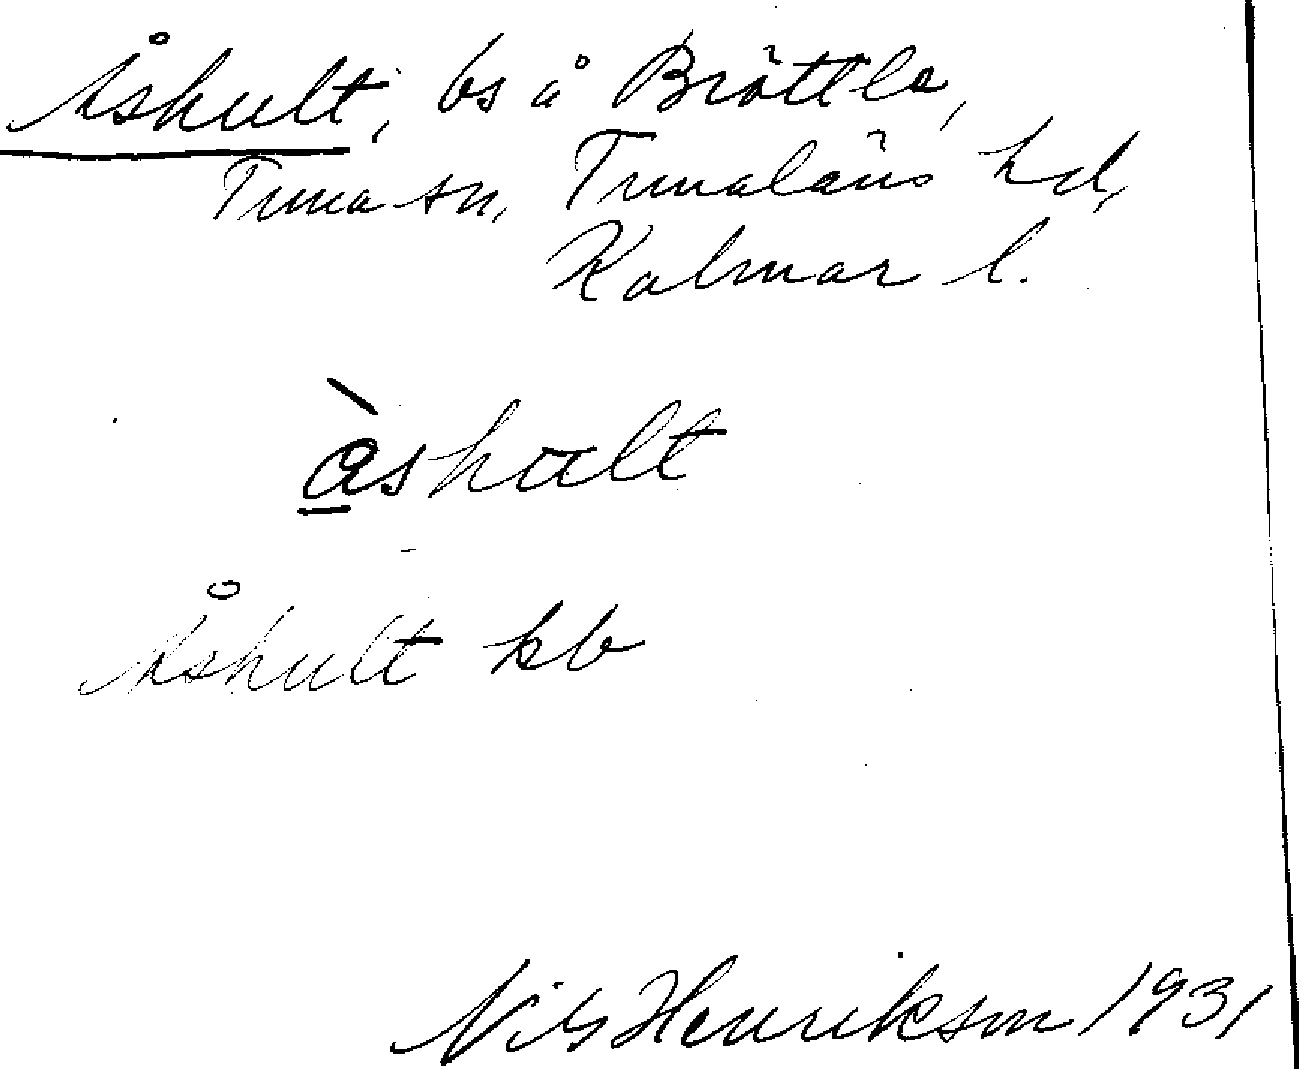 Åshult, bs å Bröttle,
Tuna sn, Tunaläns hd,
Kalmar l.
àshult
Åshult kb
Nils Henrikson 1931